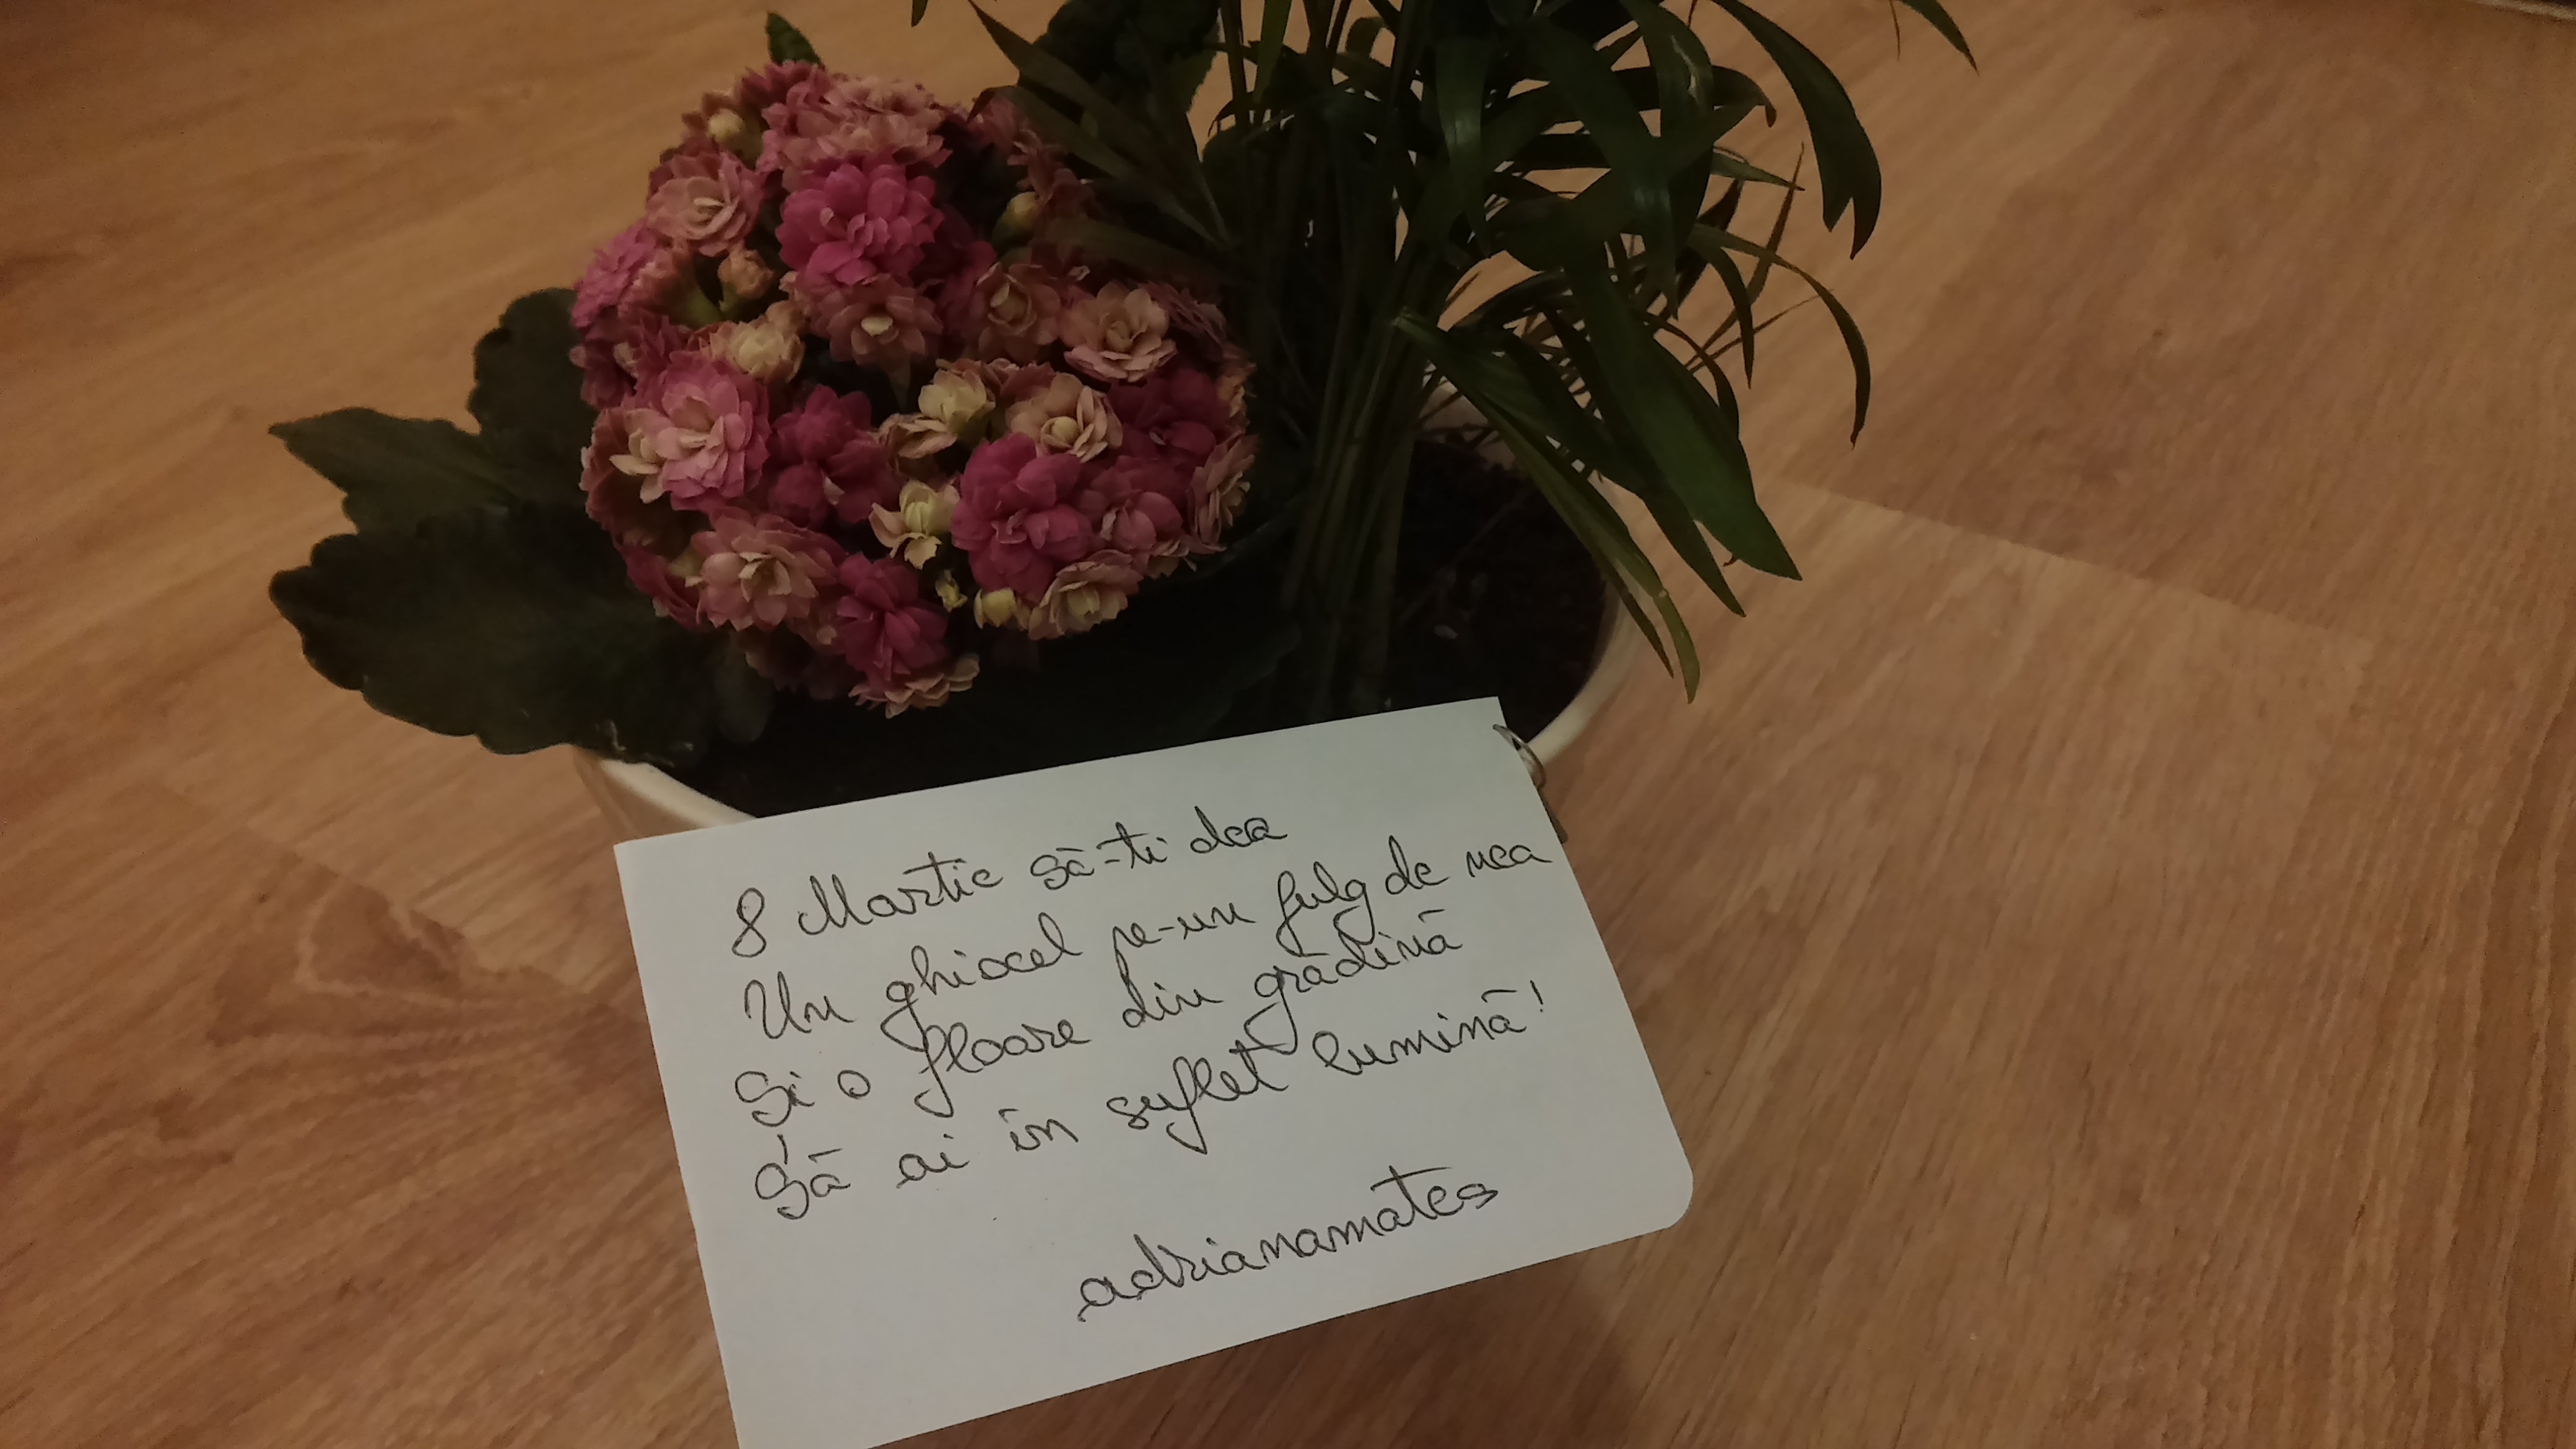 8 Martie să-ti dea
Un ghiocel pe-un fulg de nea
Și o floare din grădină
Să ai în suflet lumină!
adrianamates